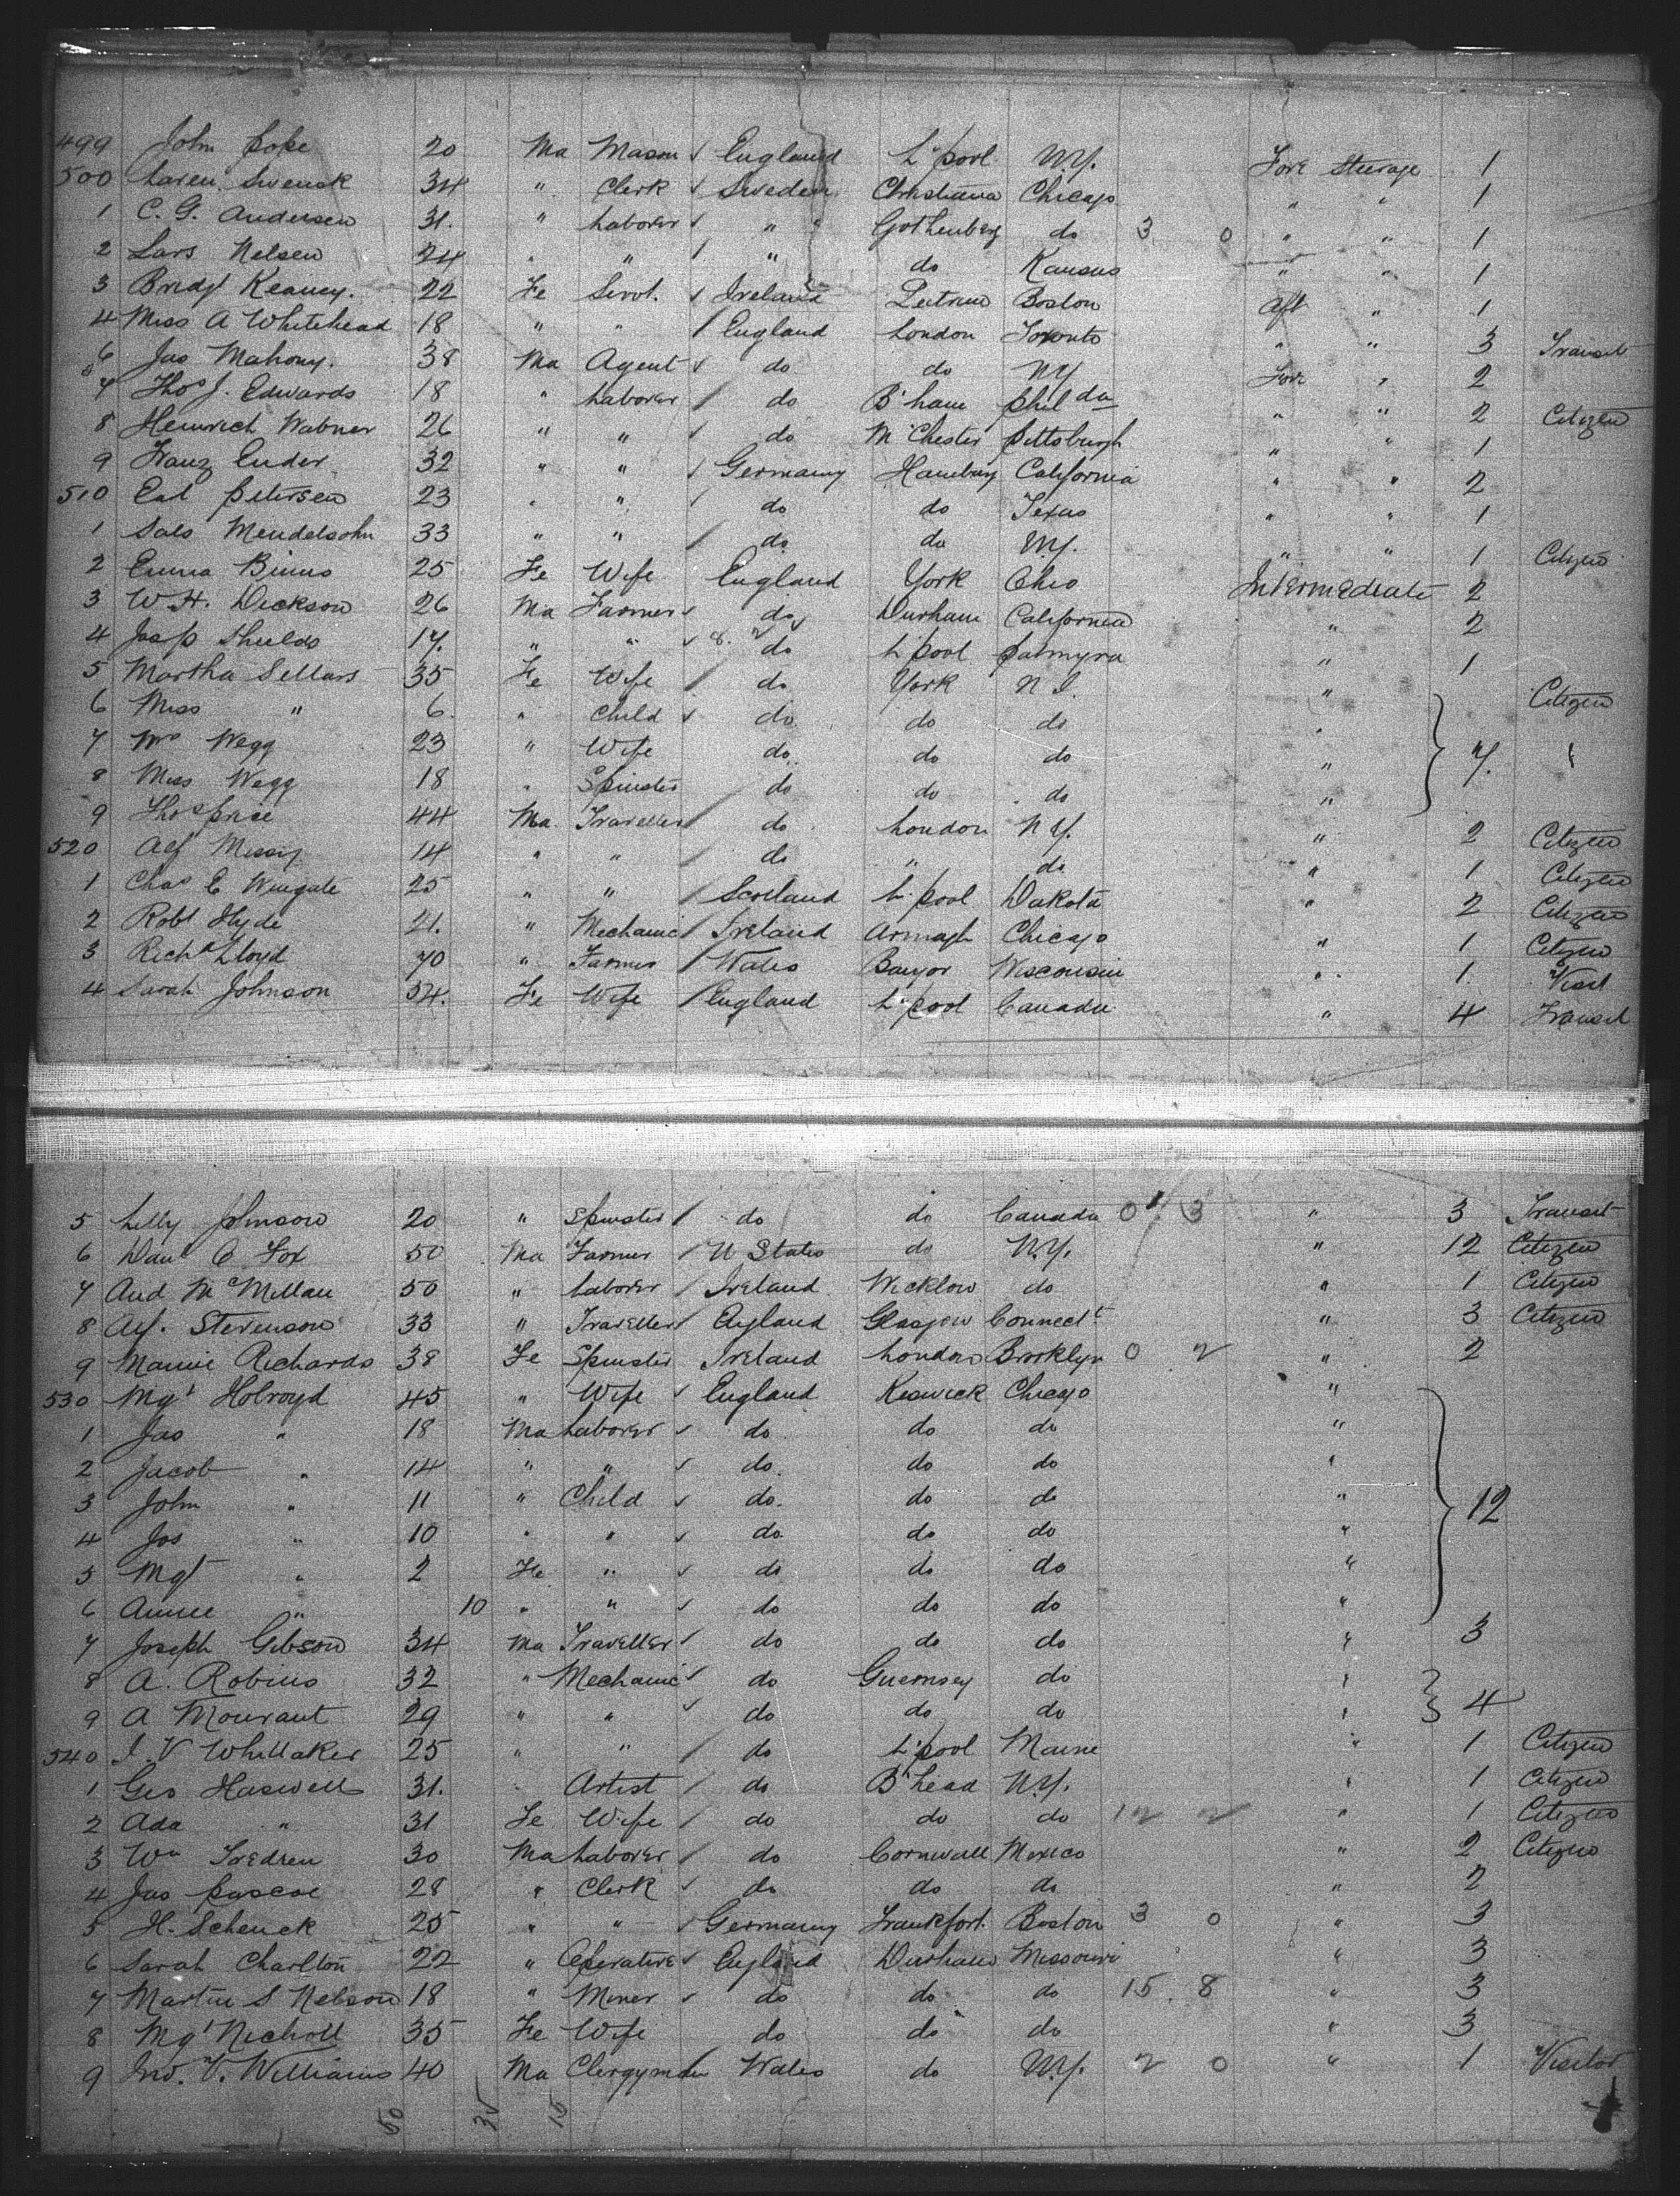 499 John Pope 20 Ma Mason England L'pool N.Y. Fore Steerage 1
500 Laren Swensk 34 " Clerk Sweden Christiana Chicago " " 1
1 C. G. Andersen 31. " Laborer " " Gothenberg do 3 0 " " 1
2 Lars Nelsen 24 " " " do Kansas " " 1
3 Bridgt Keaney. 22 Fe Servt. Ireland Leitrim Boston Aft " 1
4 Miss A Whitehead 18 " " England London Toronto " " 3 Transit
6 Jas Mahony. 38 Ma Agent do do NY Fore " 2
7 Thos J. Edwards 18 " Laborer do B'ham Philda " " 2 Citizen
8 Heinrich Wabner 26 " " do M'Chester Pittsburgh " " 1
9 Franz Ender 32 " " Germany Hamburg California " " 2
510 Petersen 23 " " do do Texas " " 1
1 Mendelsohn 33 " " do do N.Y. " " 1 Citizen
2 Emma Binns 25 Fe Wife England York Ohio Intermediate 2
3 W. H. Dickson 26 Ma Farmer do Durham California " 2
4 Jas P Shields 17. " " do L'pool Palmyra " 1
5 Martha Sellars 35 Fe Wife do York N J. " Citizen
6 Miss " 6. " Child do. do do "
7 Mrs Wegg 23 " Wife do. do do " 7. "
8 Miss Wegg 18 " Spinster do do do "
9 Thos Price 44 Ma Traveller do London N Y. " 2 Citizen
520 Alf 14 " " do " do " 1 Citizen
1 Chas E Wingate 25 " " Scotland L'pool Dakota " 2 Citizen
2 Robt Hyde 21. " Mechanic Ireland Armagh Chicago " 1 Citizen
3 Richd Lloyd 70 " Farmer Wales Bangor Wisconsin " 1. Visit
4 Sarah Johnson 54. Fe Wife England L'pool Canada " 4 Transit
5 Lilly Johnson 20 " Spinster do do Canada 0 3 " 3 Transit
6 Danl C Fox 50 Ma Farmer U States do N.Y. " 12 Citizen
7 And McMillan 50 " Laborer Ireland Wicklow do " 1 Citizen
8 Alf. Stevenson 33 " Traveller England Glasgow Connectt " 3 Citizen
9 Mamie Richards 38 Fe Spinster Ireland London Brooklyn 0 2 " 2
530 Mgt Holroyd 45 " Wife England Keswick Chicago "
1 Jas " 18 Ma Laborer do do do "
2 Jacob " 14 " " do. do do "
3 John " 11 " Child do. do do " 12
4 Jos " 10 " " do do do "
5 Mgt " 2 Fe " do do do "
6 Annie " 10 " " do do do "
7 Joseph Gibson 34 Ma Traveller do do do " 3
8 A. Robins 32 " Mechanic do Guernsey do "
9 A Mourant 29 " " do do do " 4
540 J. V Whittaker 25 " " do L'pool Maine " 1 Citizen
1 Geo Haswell 31. " Artist do B'head N.Y. " 1 Citizen
2 Ada " 31 Fe Wife do do do 12 2 " 1 Citizen
3 Wm Tredren 30 Ma Laborer do Cornwall Mexico " 2 Citizen
4 Jas Pascoe 28 " Clerk do do do " 2
5 H. Schenck 25 " " Germany Frankfort. Boston 3 0 " 3
6 Sarah Charlton 22 " Operative England Durham Missouri " 3
7 Martin S Nelson 18 " Miner do do do 15. 8 " 3
8 Mgt Nicholl 35 Fe Wife do do do " 3
9 Jno. V. Williams 40 Ma Clergyman Wales do N.Y. 2 0 " 1 Visitor
50 35 15